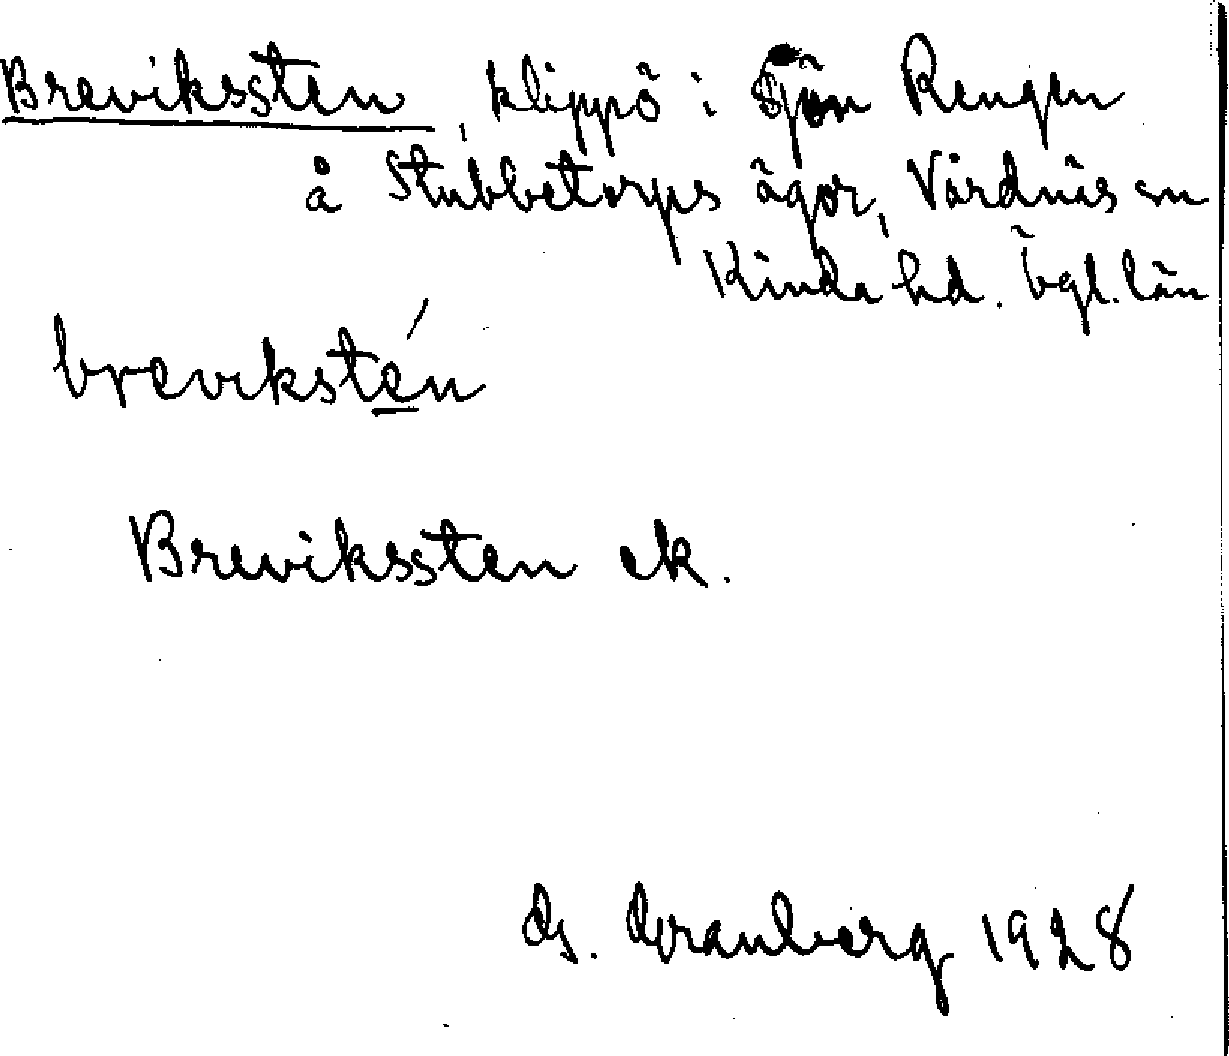 Brevikssten, klippö i sjön Rengen
å Stubbetorps ägor, Vårdnäs sn
Kinda hd. Ögl. län
brevikstén
Brevikssten ek.
G. Granberg 1928